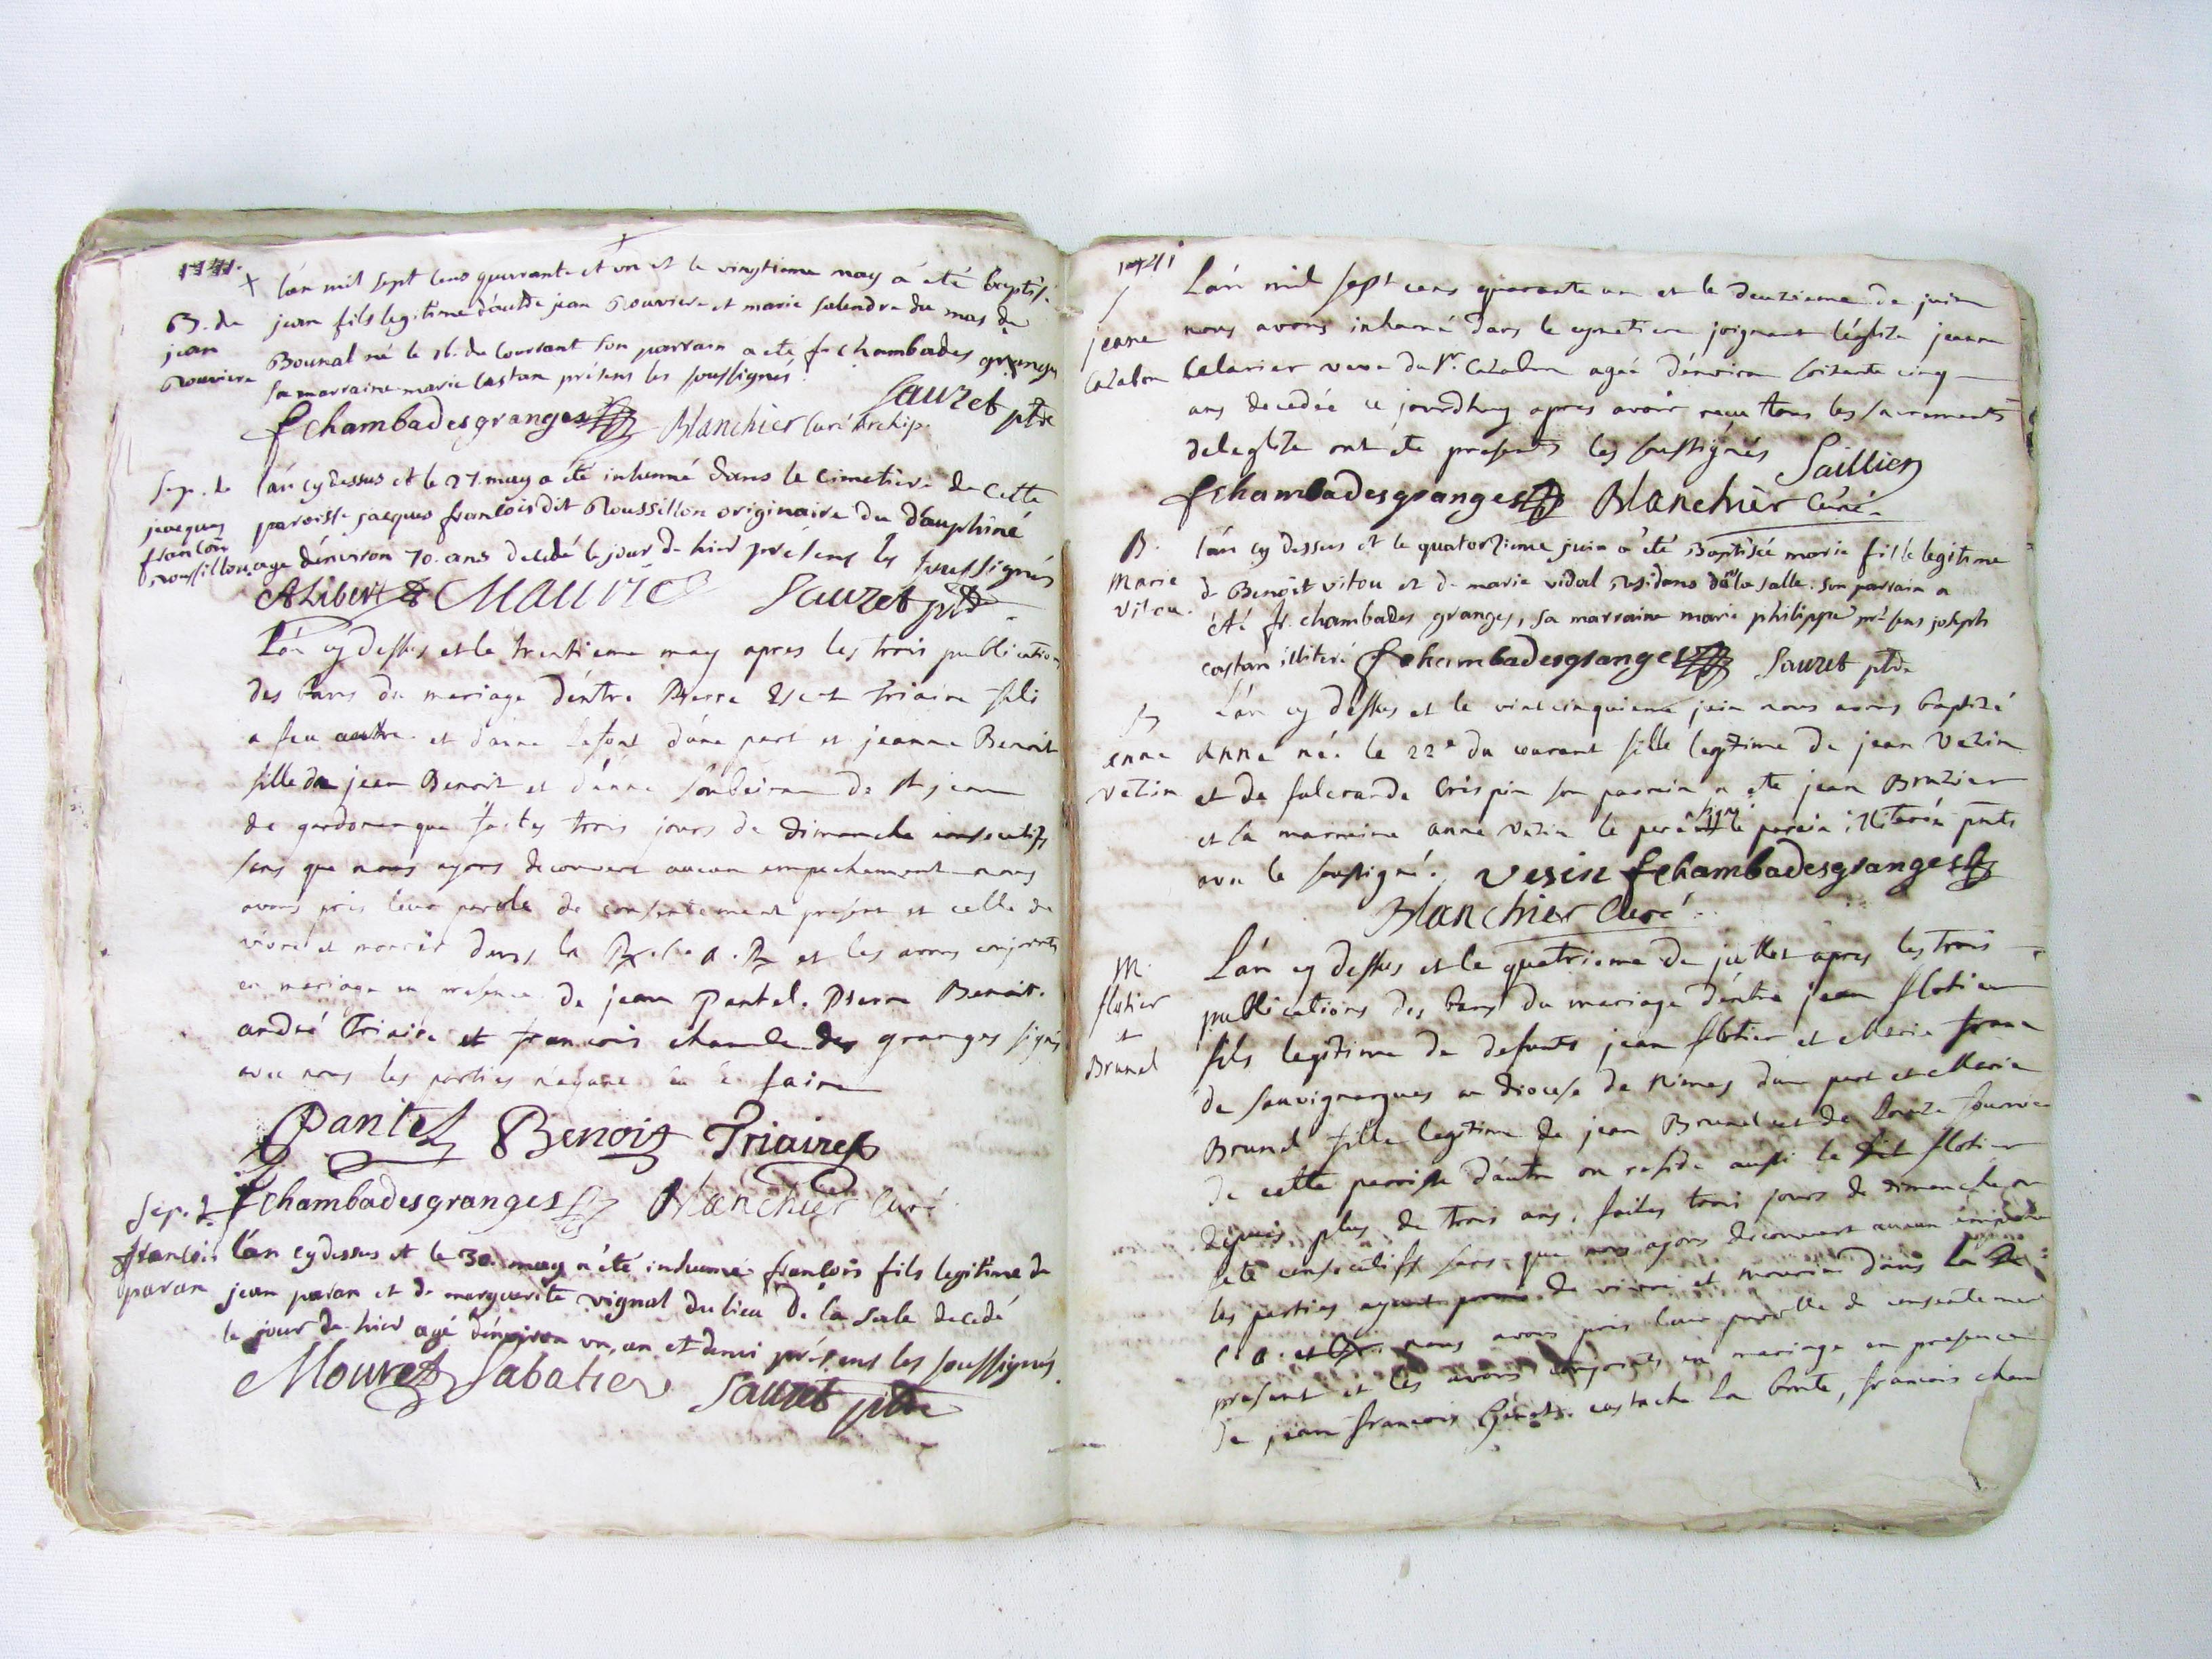 1741.
B. de
jean
Rouviere
l'an mil sept cens quarante et un et le vingtieme may a eté baptisé
jean fils legitime d'autre jean Rouviere et marie salendre du mas de
Bounal né le 16. du courant son parrain a eté fr. chambades granges
sa marraine marie castan présens les soussignés.
fchambadesgranges Blanchier curé Archip. Sauzet ptre
Sep. de
jacques
francois
roussillon
l'an cy dessus et le 27. may a été inhumé dans le cimetiere de cette
paroisse jacques francois dit Roussillon originaire du dauphiné
age d'environ 70. ans decedé le jour de hier présens les soussignés
Alibert Sauzet ptre
L'an cy dessus et le trentieme may apres les trois publications
des bans du mariage d'entre Pierre Triaire fils
a feu autre et d'anne lafont d'une part et jeanne Benoit
fille de jean Benoit et d'anne Soubeiran de st jean
de gardonenque faites trois jours de dimanche consecutifs
sans que nous ayons decouvert aucun empechement nous
avons pris leur parole de consentement present et celle de
vivre et mourir dans la R. c. a. R. et les avons conjoints
en mariage en presence de jean Pantel. Pierre Benoit.
andré Triaire et francois chambades granges signés
avec nous les parties n'ayant sû le faire
Pantel Benoit Triaire
fchambadesgranges Blanchier Curé
Sep. d.
francois
paran
l'an cy dessus et le 30. may a été inhumé francois fils legitime de
jean paran et de marguerite vignal du lieu de la sale decedé
le jour de hier agé d'environ un, an et demi présens les soussignés.
Mouret Sabatier Sauzet ptre
1741
jeane
Cazalon
L'an mil sept cens quarante un et le deuzieme de juin
nous avons inhumé dans le cymetiere joignant l'eglize jeane
Celarier veve du Sr. Cazalon agée d'environ soixante cinq
ans decedée ce jourdhuy apres avoir reçu tous les sacrements
de leglize ont eté presents les soussignés Saillien
fchambadesgranges Blanchier Curé.
B.
Marie
Vitou.
l'an cy dessus et le quatorzieme juin a été Baptisée marie fille legitime
de Benoit vitou et de marie vidal residans de la salle. Son parrain a
été fr. chambades granges, sa marraine marie philippe présens joseph
castan illiteré fchambadesgranges Sauzet ptre
B
anne
Vezin
L'an cy dessus et le vint cinquieme juin nous avons baptizé
Anne née le 22e du courant fille legitime de jean Vezin
et de fulcrande Crispin son parrein a ete jean Bruzier
et la marreine anne Vezin le pere signé le parein illiteré pnts
avec le soussigné. vesin fchambadesgranges
Blanchier Curé.
M.
flotier
et
Brunel
L'an cy dessus et le quatrieme de juillet apres les trois
publications des bans du mariage d'entre jean flotier
fils legitime de defunts jean flotier et Marie franc
de Souvignargues au diocese de Nimes d'une part et Marie
Brunel fille legitime de jean Brunel et de Louize
de cette paroisse d'autre ou reside aussi le dit flotier
depuis plus de trois ans, faites trois jours de dimanche ou
fete consecutifs sans que nous ayons decouvert aucun
les parties ayant promis de vivre et mourir dans la R.
c. a. et R. nous avons pris leur parolle de consentement
present et les avons conjoints en mariage en presence
de jean francois eustache La bonte, francois cham